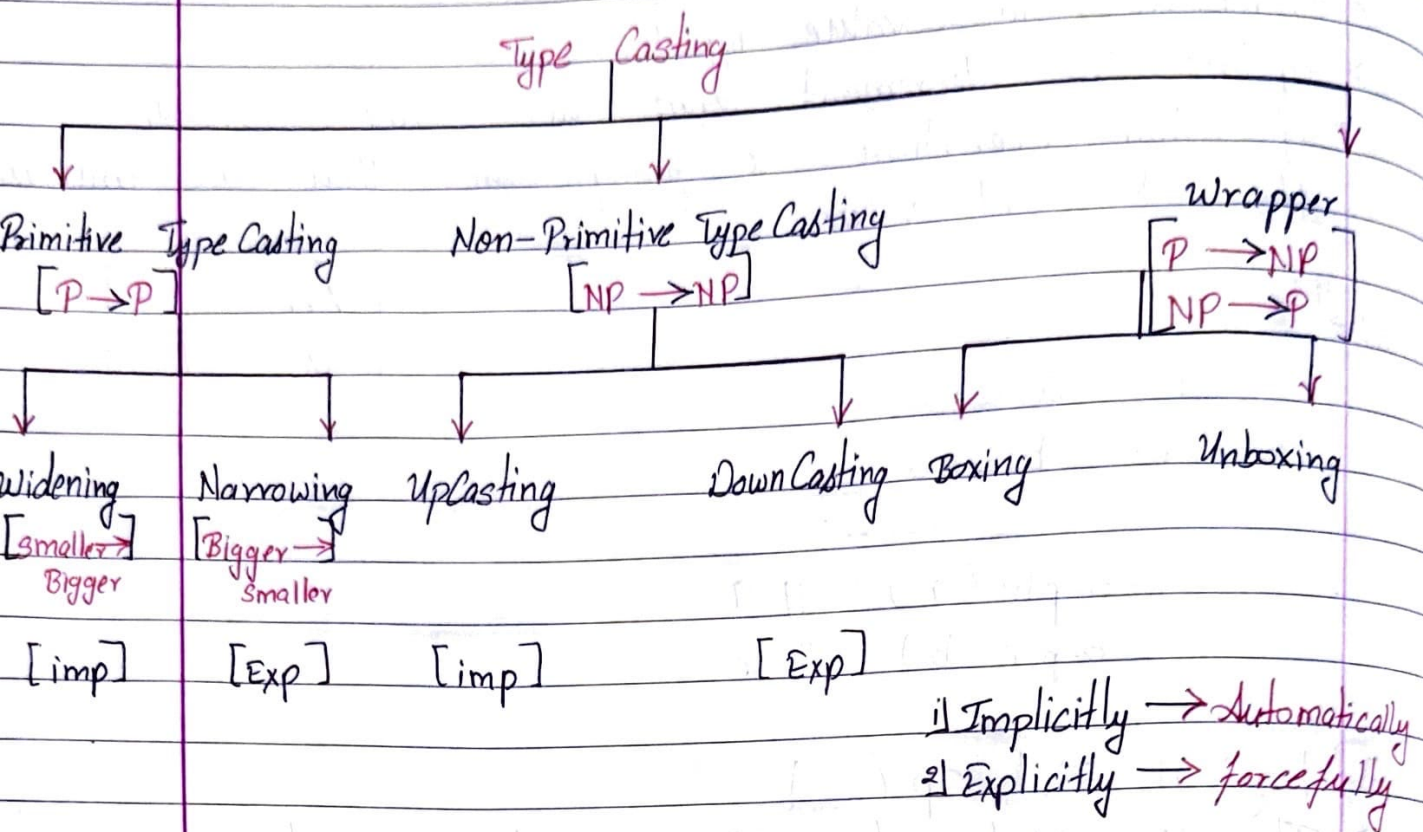 Type Casting
Primitive Type Casting
[P→P]
Non-Primitive Type Casting
[NP→NP]
Wrapper
[P→NP
NP→P]
Widening
[Smaller→]
Bigger
Narrowing
[Bigger→]
Smaller
UpCasting
DownCasting
Boxing
Unboxing
[imp]
[Exp]
[imp]
[Exp]
1) Implicitly → Automatically
2) Explicitly → forcefully